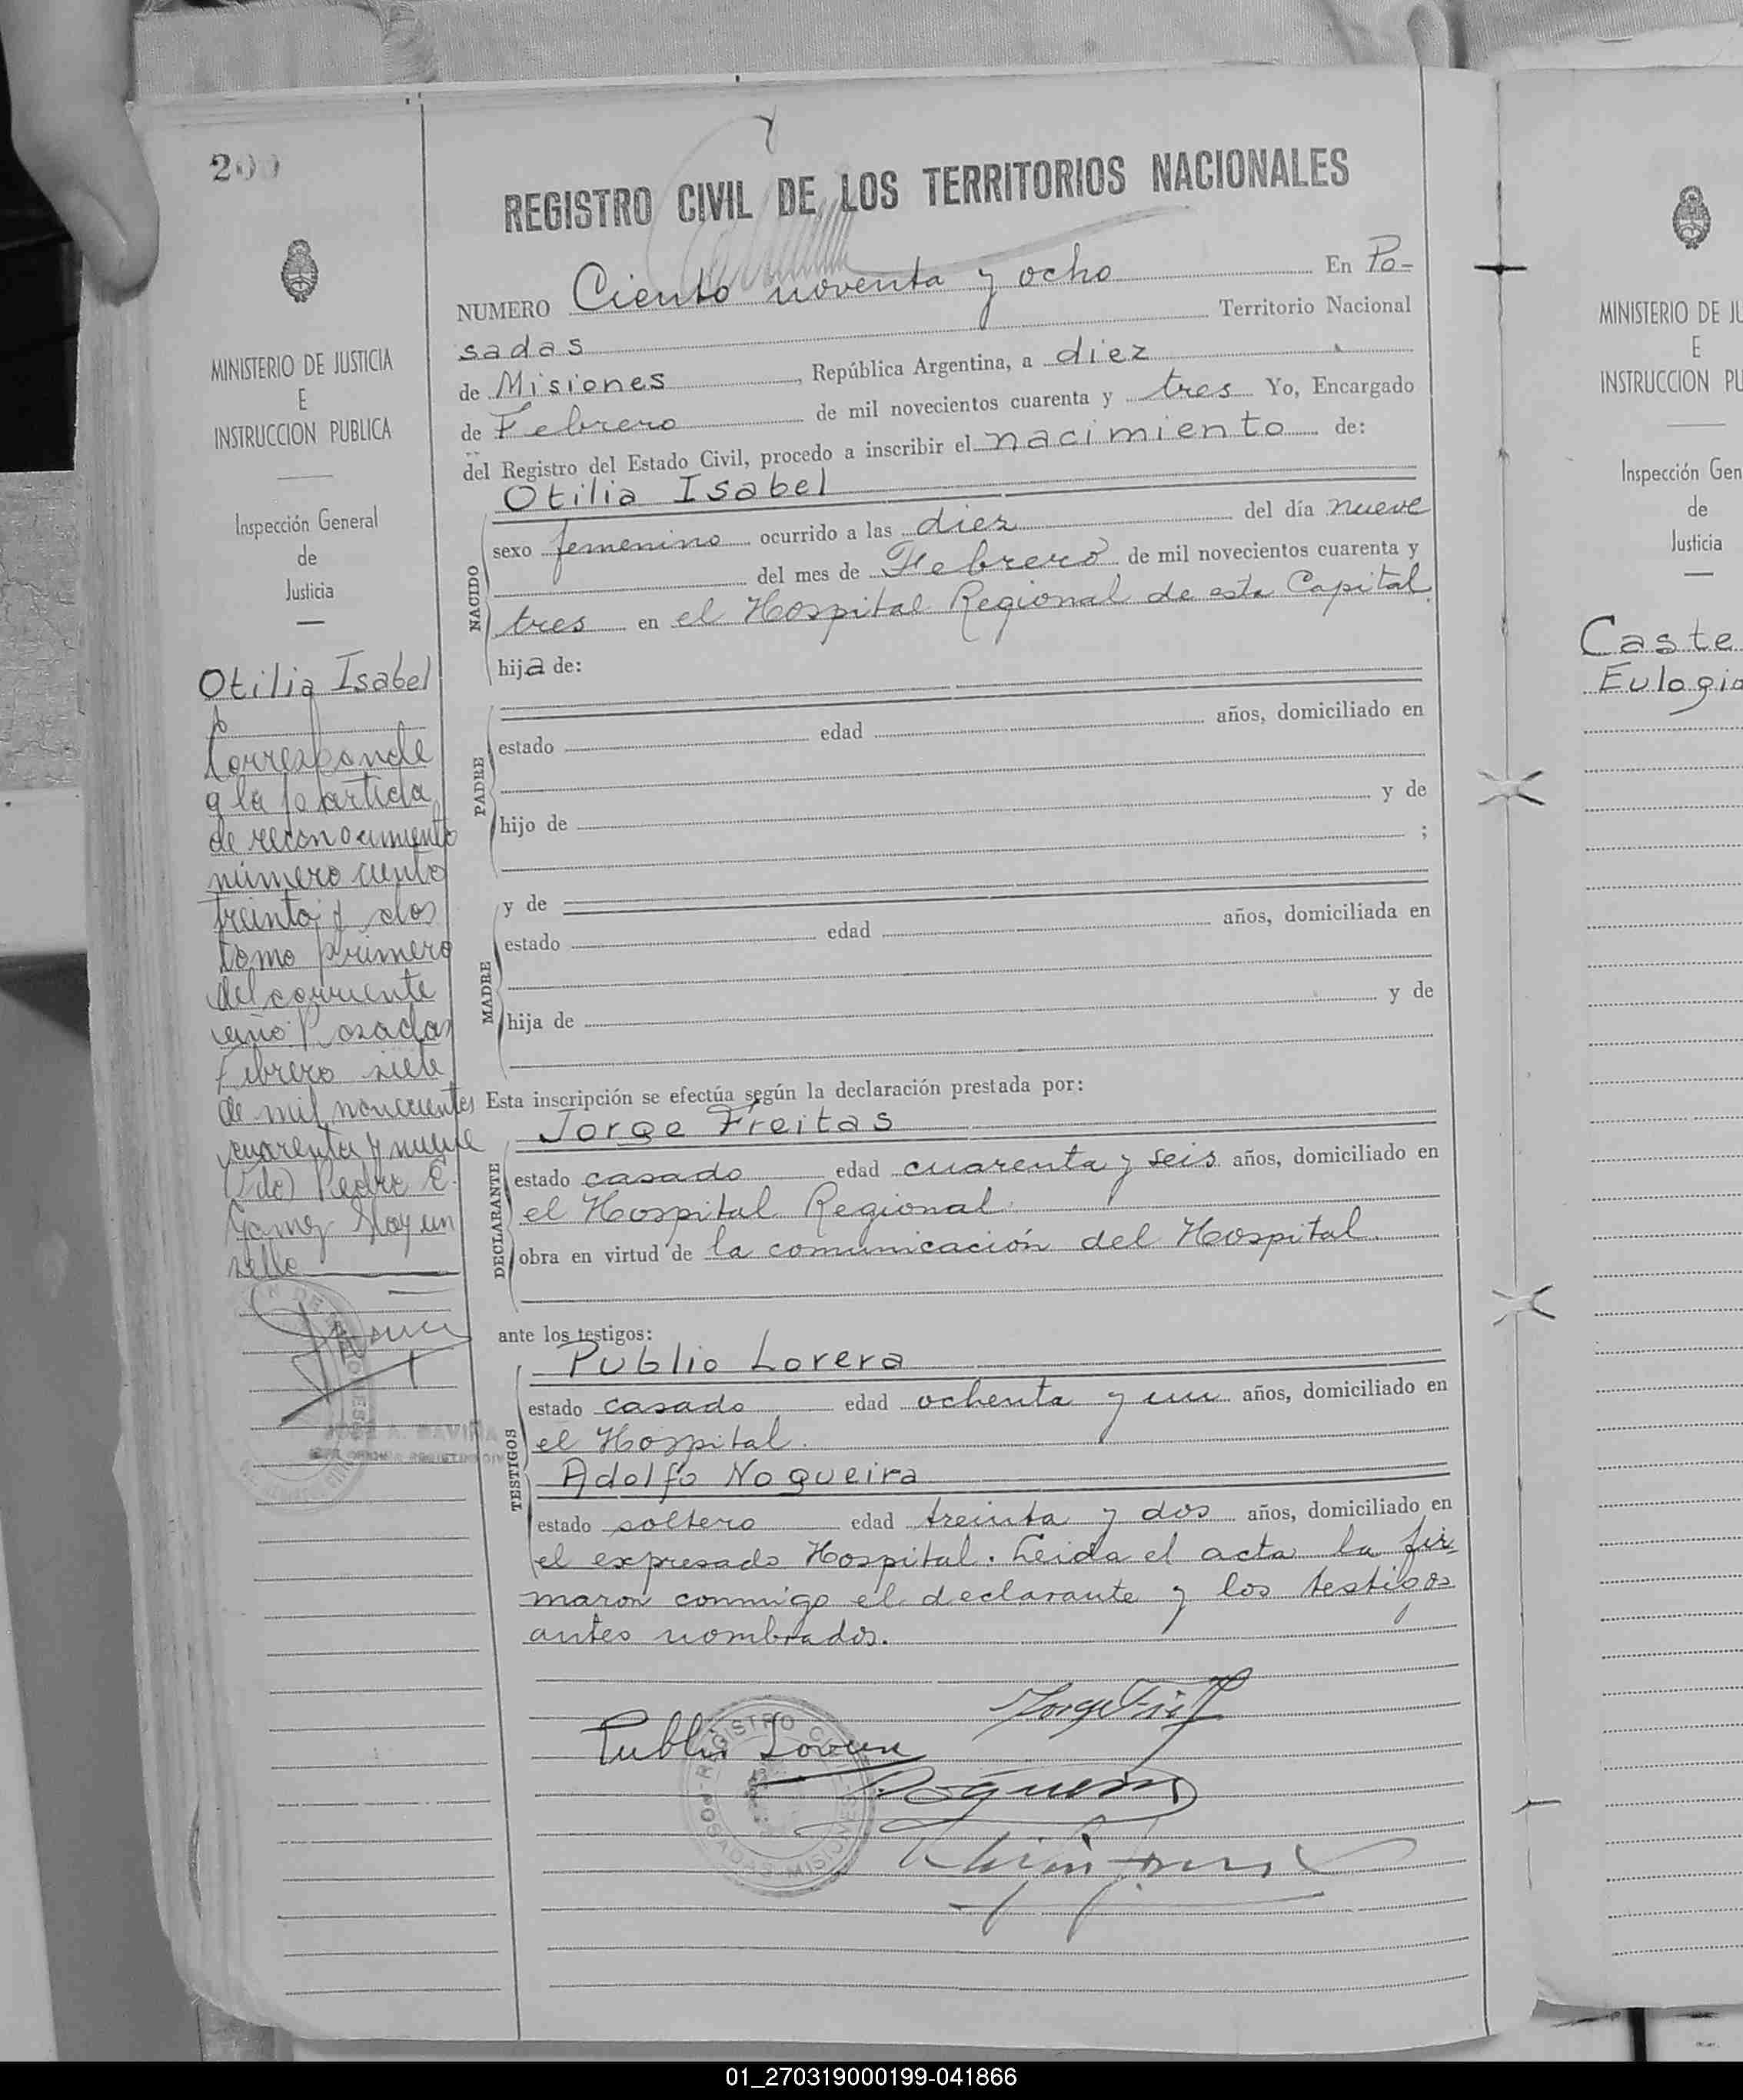 200
MINISTERIO DE JUSTICIA
E
INSTRUCCION PUBLICA
Inspección General
de
Justicia
Otilia Isabel
Corresponde
a la partida
de reconocimiento
número ciento
treinta y dos
tomo primero
del corriente
año. Posadas
Febrero siete
de mil novecientos
cuarenta y nueve
(Fdo) Pedro E.
Gamez Hay un
sello
REGISTRO CIVIL DE LOS TERRITORIOS NACIONALES
NUMERO Ciento noventa y ocho En Po-
sadas Territorio Nacional
de Misiones, República Argentina, a diez
de Febrero de mil novecientos cuarenta y tres Yo, Encargado
del Registro del Estado Civil, procedo a inscribir el nacimiento de:
Otilia Isabel
NACIDO
sexo femenino ocurrido a las diez del día nueve
del mes de Febrero de mil novecientos cuarenta y
tres en el Hospital Regional de esta Capital.
hija de:
PADRE
estado edad años, domiciliado en
hijo de y de
;
MADRE
y de
estado edad años, domiciliada en
hija de y de
Esta inscripción se efectúa según la declaración prestada por:
Jorge Freitas
DECLARANTE
estado casado edad cuarenta y seis años, domiciliado en
el Hospital Regional.
obra en virtud de la comunicación del Hospital.
ante los testigos:
Publio Lorera
TESTIGOS
estado casado edad ochenta y un años, domiciliado en
el Hospital.
Adolfo Nogueira
estado soltero edad treinta y dos años, domiciliado en
el expresado Hospital. Leida el acta la fir-
maron conmigo el declarante y los testigos
antes nombrados.
Publio
REGISTRO CIVIL
POSADAS MISIONES
MINISTERIO DE JU
E
INSTRUCCION PU
Inspección Gen
de
Justicia
Caste
Eulogia
01_270319000199-041866